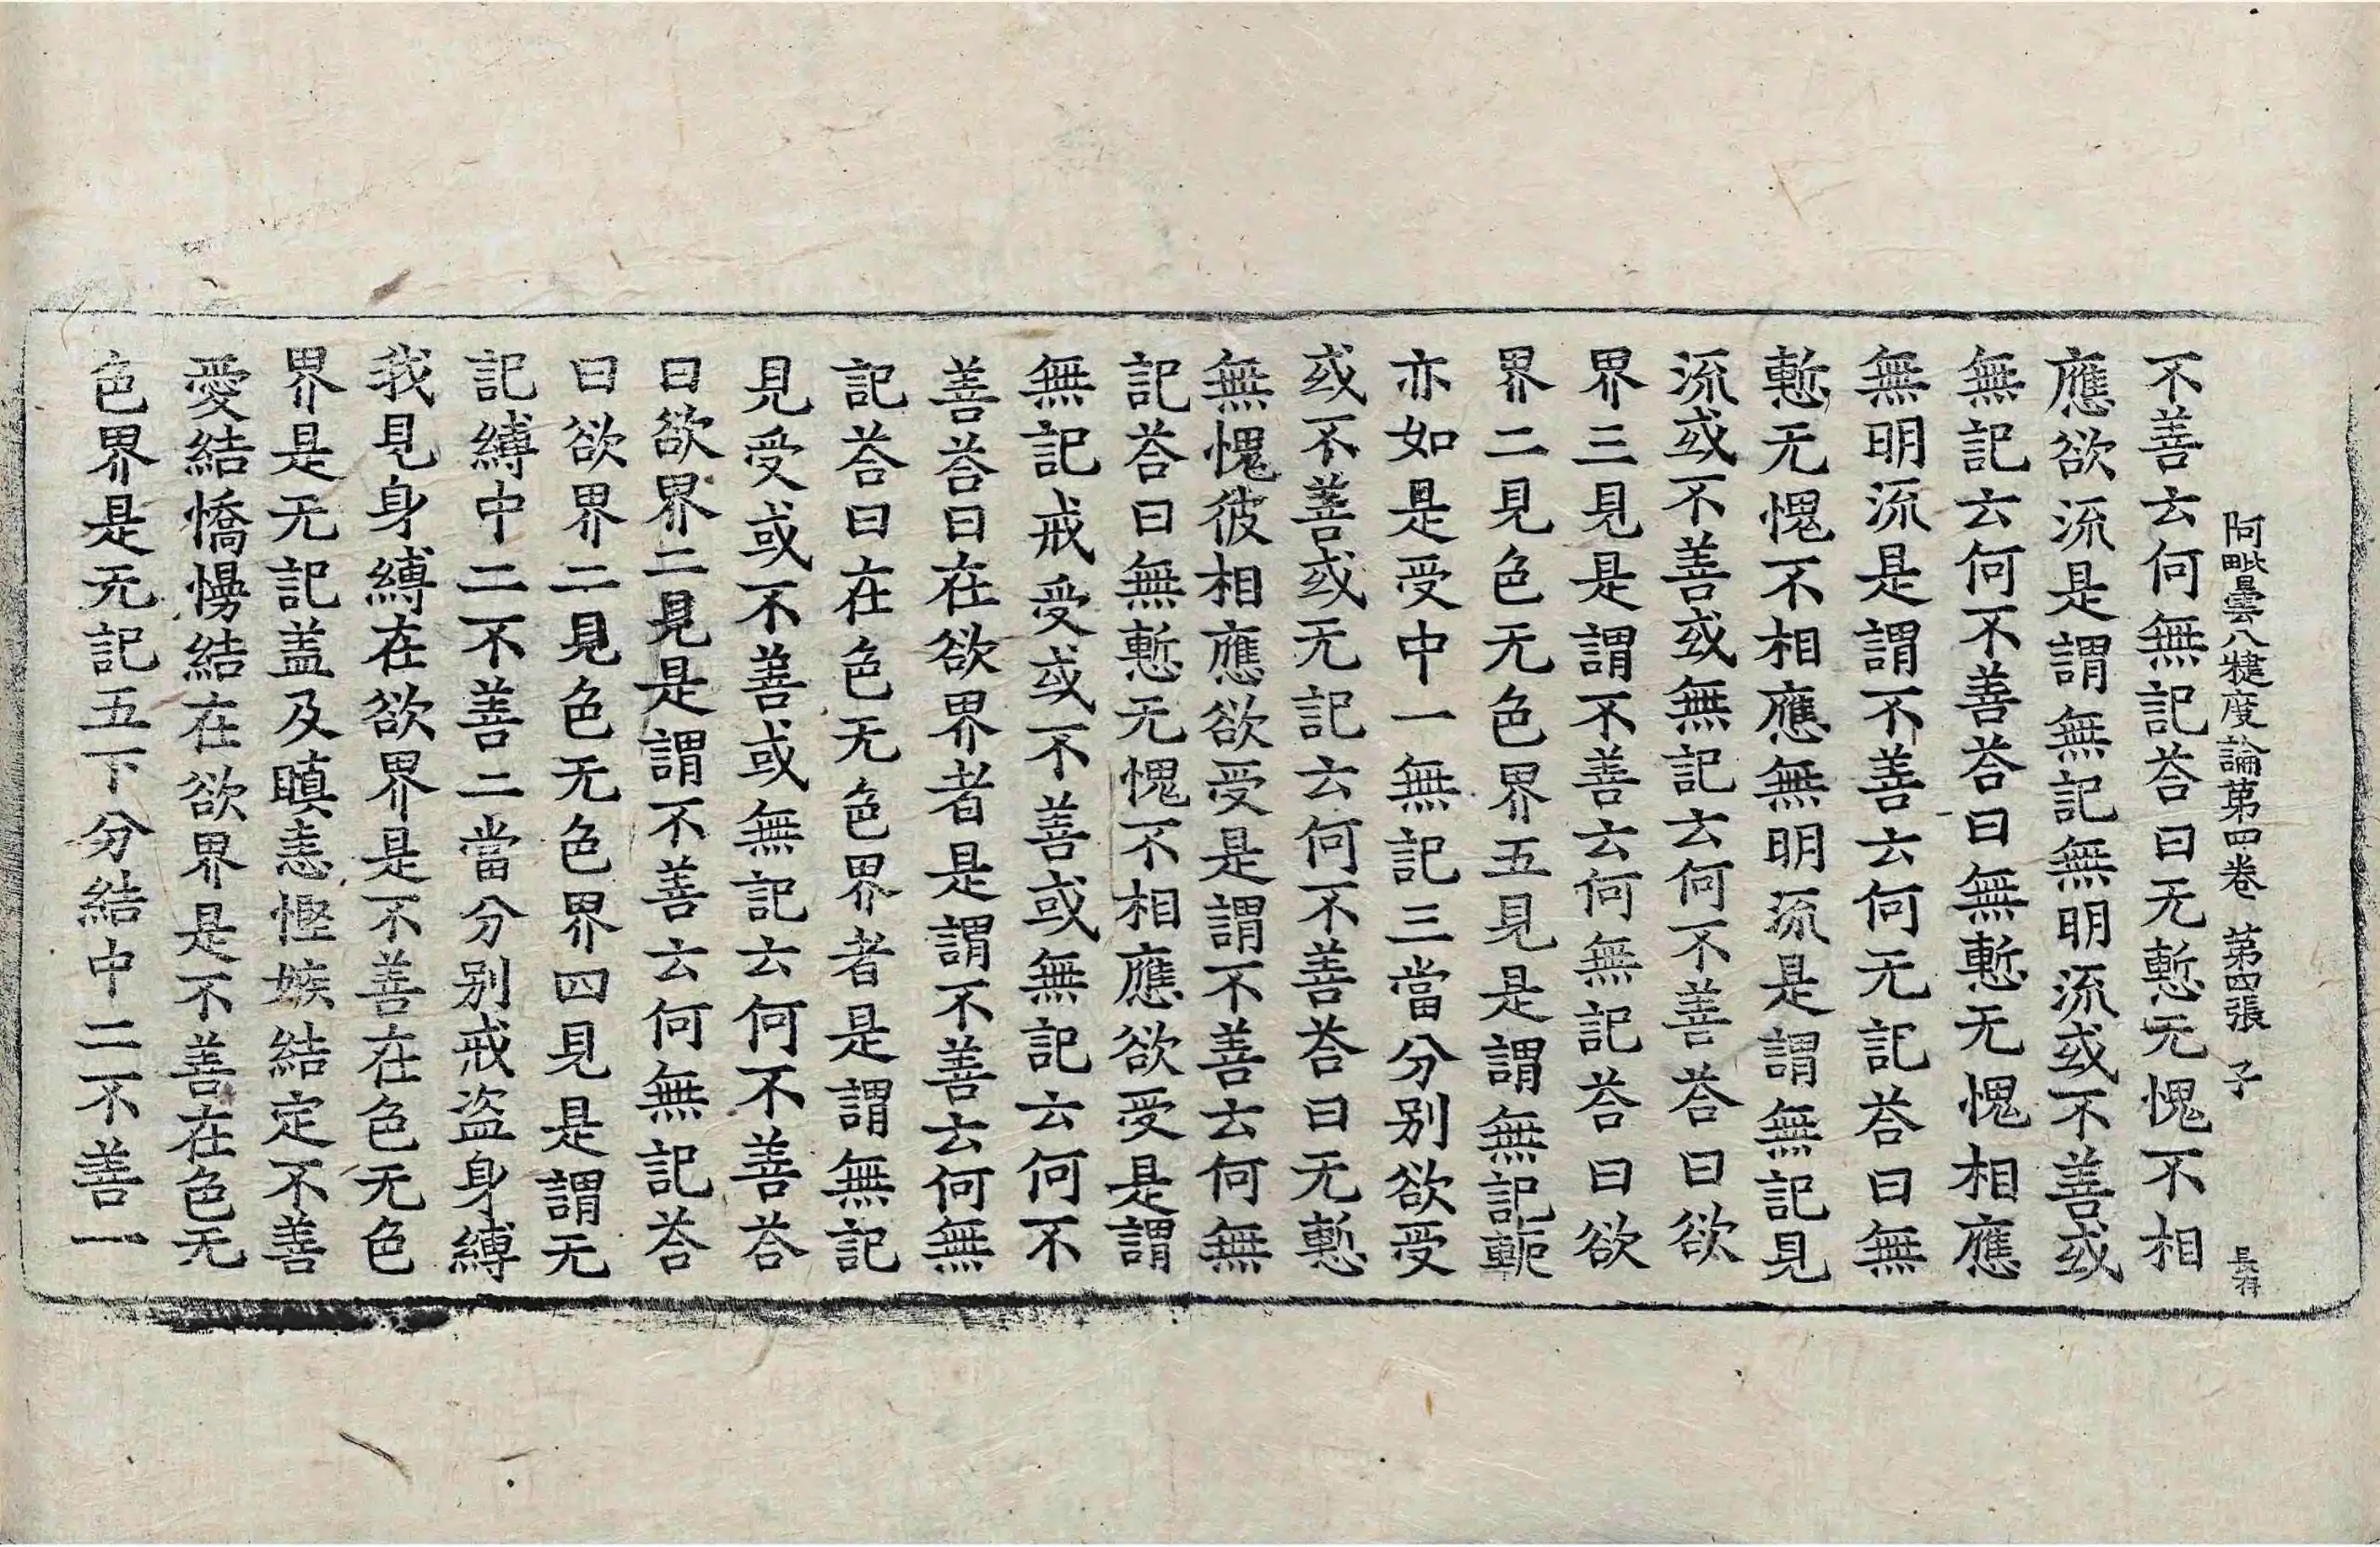 阿毗曇八犍度論第四卷 第四張 子
不善云何無記荅曰无慙无愧不相
應欲流是謂無記無明流或不善或
無記云何不善荅曰無慙无愧相應
無明流是謂不善云何无記荅曰無
慙无愧不相應無明流是謂無記見
流或不善或無記云何不善荅曰欲
界三見是謂不善云何無記荅曰欲
界二見色无色界五見是謂無記軛
亦如是受中一無記三當分别欲受
或不善或无記云何不善荅曰无慙
無愧彼相應欲受是謂不善云何無
記荅曰無慙无愧不相應欲受是謂
無記戒受或不善或無記云何不
善荅曰在欲界者是謂不善云何無
記荅曰在色无色界者是謂無記
見受或不善或無記云何不善荅
曰欲界二見是謂不善云何無記荅
曰欲界二見色无色界四見是謂无
記縛中二不善二當分别戒盗身縛
我見身縛在欲界是不善在色无色
界是无記盖及瞋恚慳嫉結定不善
愛結憍慢結在欲界是不善在色无
色界是无記五下分結中二不善一